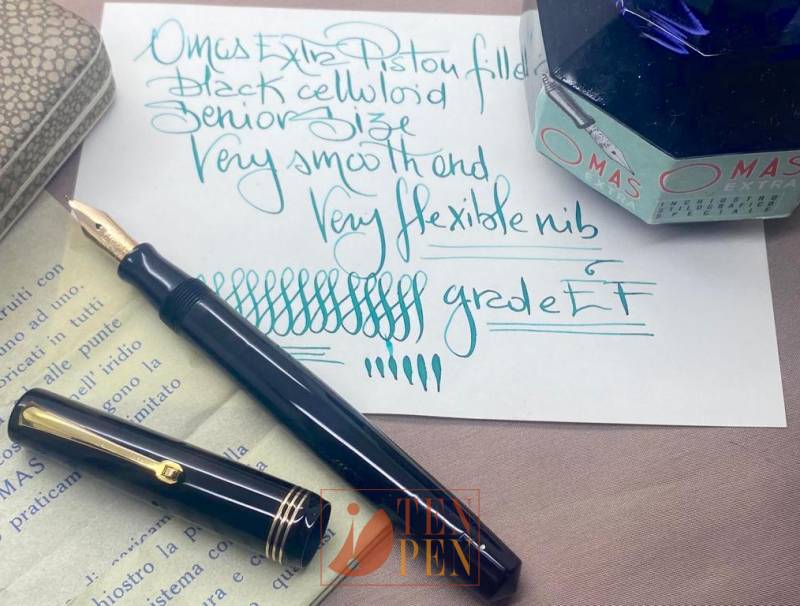 Omas Extra Piston filler
Black celluloid
Senior Size
Very smooth and
Very flexible nib
grade EF
OMAS
EXTRA
OMAS
EXTRA
INCHIOSTRO
STILOGRAFICO
SPECIALE
truiti con
uno ad uno.
oricati in tutti
alle punte
nell'iridio
ngono la
imitato
cos
alla
OMAS
praticam
di
chiostro la p
istema co
ura e c
qu
TEN
PEN